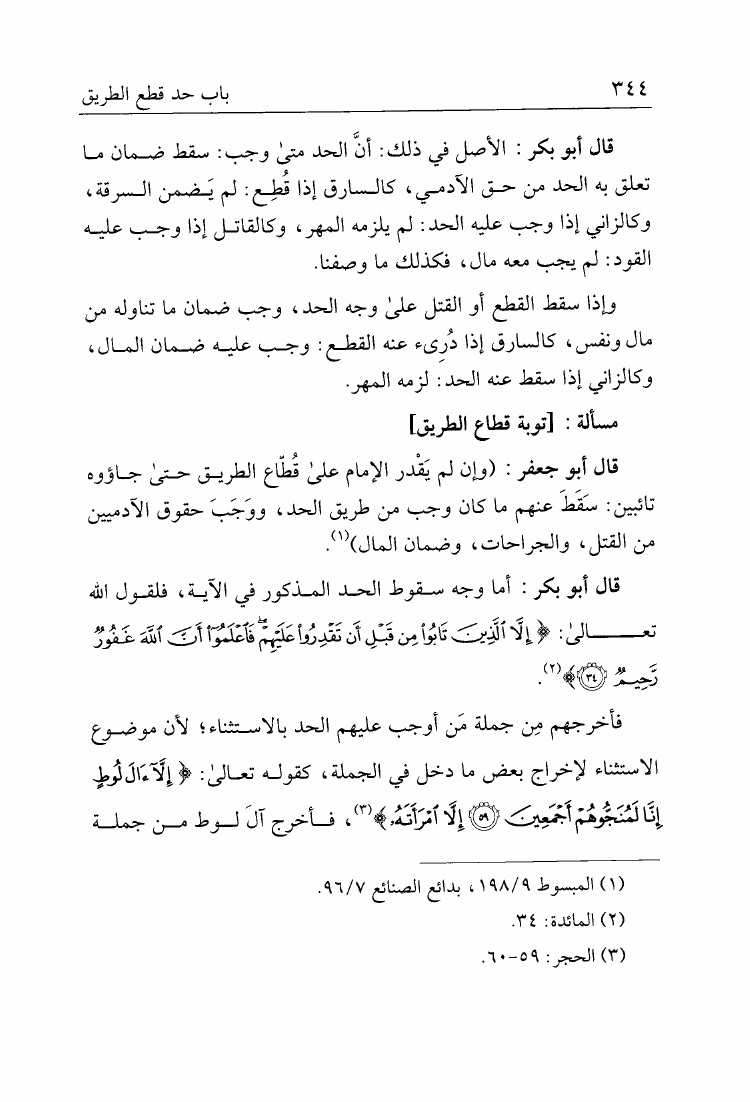 ٣٤٤
باب حد قطع الطريق
قال أبو بكر : الأصل في ذلك: أنَّ الحد متىٰ وجب: سقط ضمان ما
تعلق به الحد من حق الآدمي، كالسارق إذا قُطِع: لم يَضمن السرقة،
وكالزاني إذا وجب عليه الحد: لم يلزمه المهر، وكالقاتل إذا وجب عليه
القود: لم يجب معه مال، فكذلك ما وصفنا.
وإذا سقط القطع أو القتل علىٰ وجه الحد، وجب ضمان ما تناوله من
مال ونفس، كالسارق إذا دُرِىء عنه القطع: وجب عليه ضمان المال،
وكالزاني إذا سقط عنه الحد: لزمه المهر.
مسألة : [توبة قطاع الطريق]
قال أبو جعفر : (وإن لم يَقْدر الإمام علىٰ قُطّاع الطريق حتىٰ جاؤوه
تائبين: سَقَطَ عنهم ما كان وجب من طريق الحد، ووَجَبَ حقوق الآدميين
من القتل، والجراحات، وضمان المال)(١).
قال أبو بكر : أما وجه سقوط الحد المذكور في الآية، فلقول الله
تعالىٰ: ﴿ إِلَّا ٱلَّذِينَ تَابُوا۟ مِن قَبْلِ أَن تَقْدِرُوا۟ عَلَيْهِمْ ۖ فَٱعْلَمُوٓا۟ أَنَّ ٱللَّهَ غَفُورٌ
رَّحِيمٌ ٣٤ ﴾(٢).
فأخرجهم مِن جملة مَن أوجب عليهم الحد بالاستثناء؛ لأن موضوع
الاستثناء لإخراج بعض ما دخل في الجملة، كقوله تعالىٰ: ﴿ إِلَّآ ءَالَ لُوطٍ
إِنَّا لَمُنَجُّوهُمْ أَجْمَعِينَ ٥٩ إِلَّا ٱمْرَأَتَهُۥ ﴾(٣)، فأخرج آلَ لوط من جملة
(١) المبسوط ١٩٨/٩، بدائع الصنائع ٩٦/٧.
(٢) المائدة: ٣٤.
(٣) الحجر: ٥٩-٦٠.